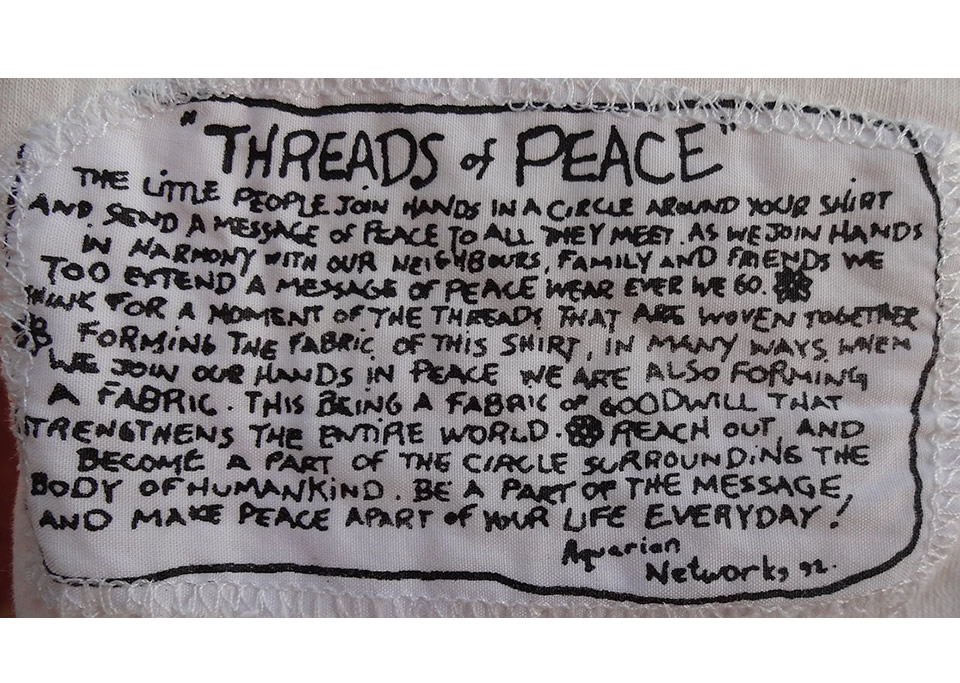 "THREADS of PEACE"
THE LITTLE PEOPLE JOIN HANDS IN A CIRCLE AROUND YOUR SHIRT
AND SEND A MESSAGE of PEACE TO ALL THEY MEET. AS WE JOIN HANDS
IN HARMONY WITH OUR NEIGHBOURS, FAMILY AND FRIENDS WE
TOO EXTEND A MESSAGE OF PEACE WEAR EVER WE GO.
THINK FOR A MOMENT OF THE THREADS THAT ARE WOVEN TOGETHER
FORMING THE FABRIC OF THIS SHIRT, IN MANY WAYS WHEN
WE JOIN OUR HANDS IN PEACE WE ARE ALSO FORMING
A FABRIC. THIS BEING A FABRIC OF GOODWILL THAT
STRENGTHENS THE ENTIRE WORLD. REACH OUT AND
BECOME A PART OF THE CIRCLE SURROUNDING THE
BODY OF HUMANKIND. BE A PART OF THE MESSAGE,
AND MAKE PEACE APART of YOUR LIFE EVERYDAY!
Aquarian
Networks 92.